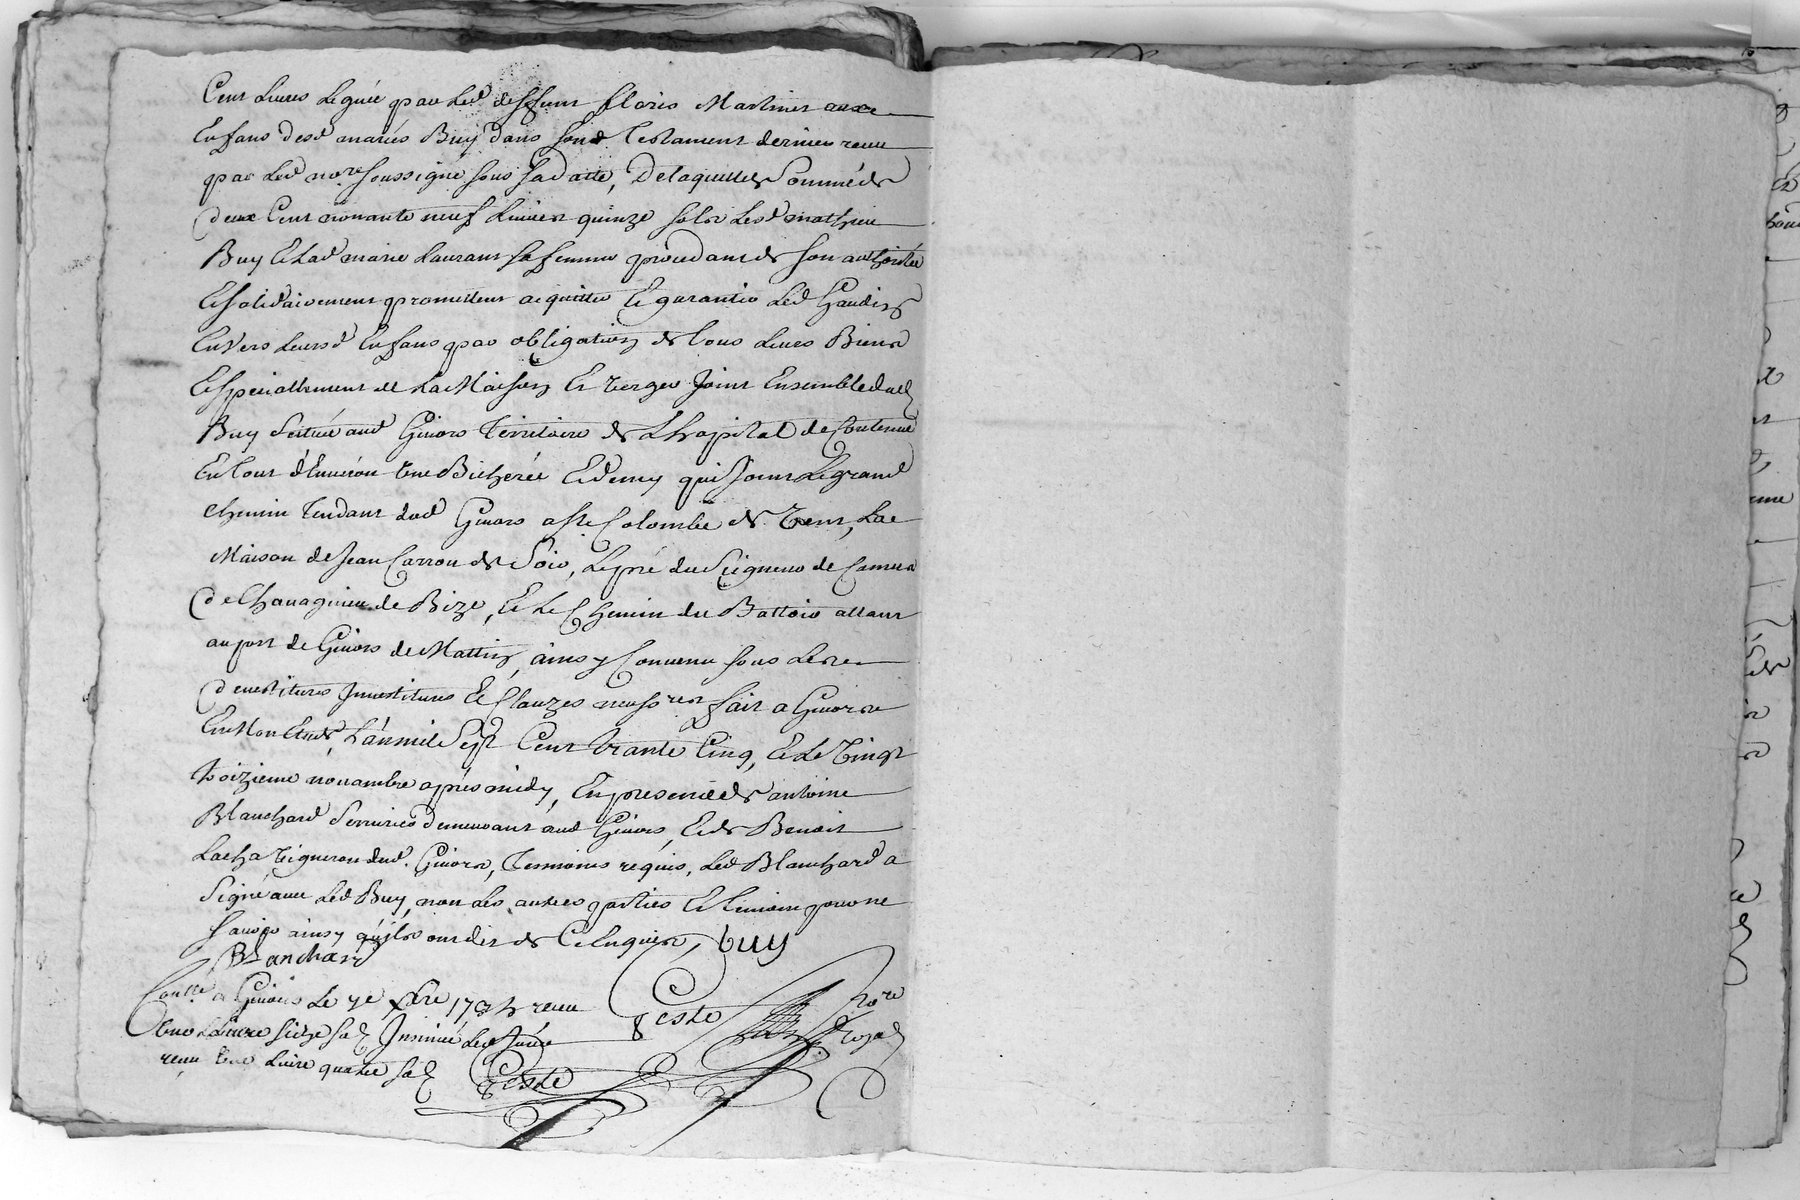 Cent Livres Leguée par Led deffunt floris Martinet aux
Enfans desd mariés Buy dans sond Testament dernier receu
par Led no.re soussigné sous sa datte, De laquelle Somme de
deux Cent nonante neuf Livres quinze sols Lesd mathieu
Buy Et Lad marie Laurant sa femme procedant de son authoritée
Et solidairement promettent acquitter Et garantir Led Gaudin
Envers Leursd Enfans par obligation de tous Leurs Biens
Et speciallement de La Maison Et verger Joint Ensemble dud
Buy Scitué aud Givors Territoire de L'hopital de Contenue
En tout d'Environ une Bicherée Et demy qui Joint Le grand
chemin Tendant dud Givors a Ste Colombe de vent, La
Maison de Jean Carron de Soir, Le pré du Seigneur de
de Bize, Et Le Chemin du Battoir allant
au port de Givors de Mattin, ainsy Convenu sous Les
devestitures Investitures Et Clauzes necess.res fait a Givors
En Mon Etude, L'an mil Sept Cent trante Cinq, Et Le Vingt
troizieme novambre aprés midy, En presence de antoine
Blanchard Serrurier demeurant aud Givors, Et de Benoit
Lacha vigneron dud. Givors, Temoins requis, Led Blanchard a
Signé avec Led Buy, non Les autres parties Et temoin pour ne
Savoir ainsy qu'ils ont dit de Ce Enquis, buy
Blanchard
Con.lle a Givors Le 7e Xbre 1735 receu
une Livre sieze sols Insinué Led Jour
receu une Livre quatre sols
Geste
No.re
Royal
Geste